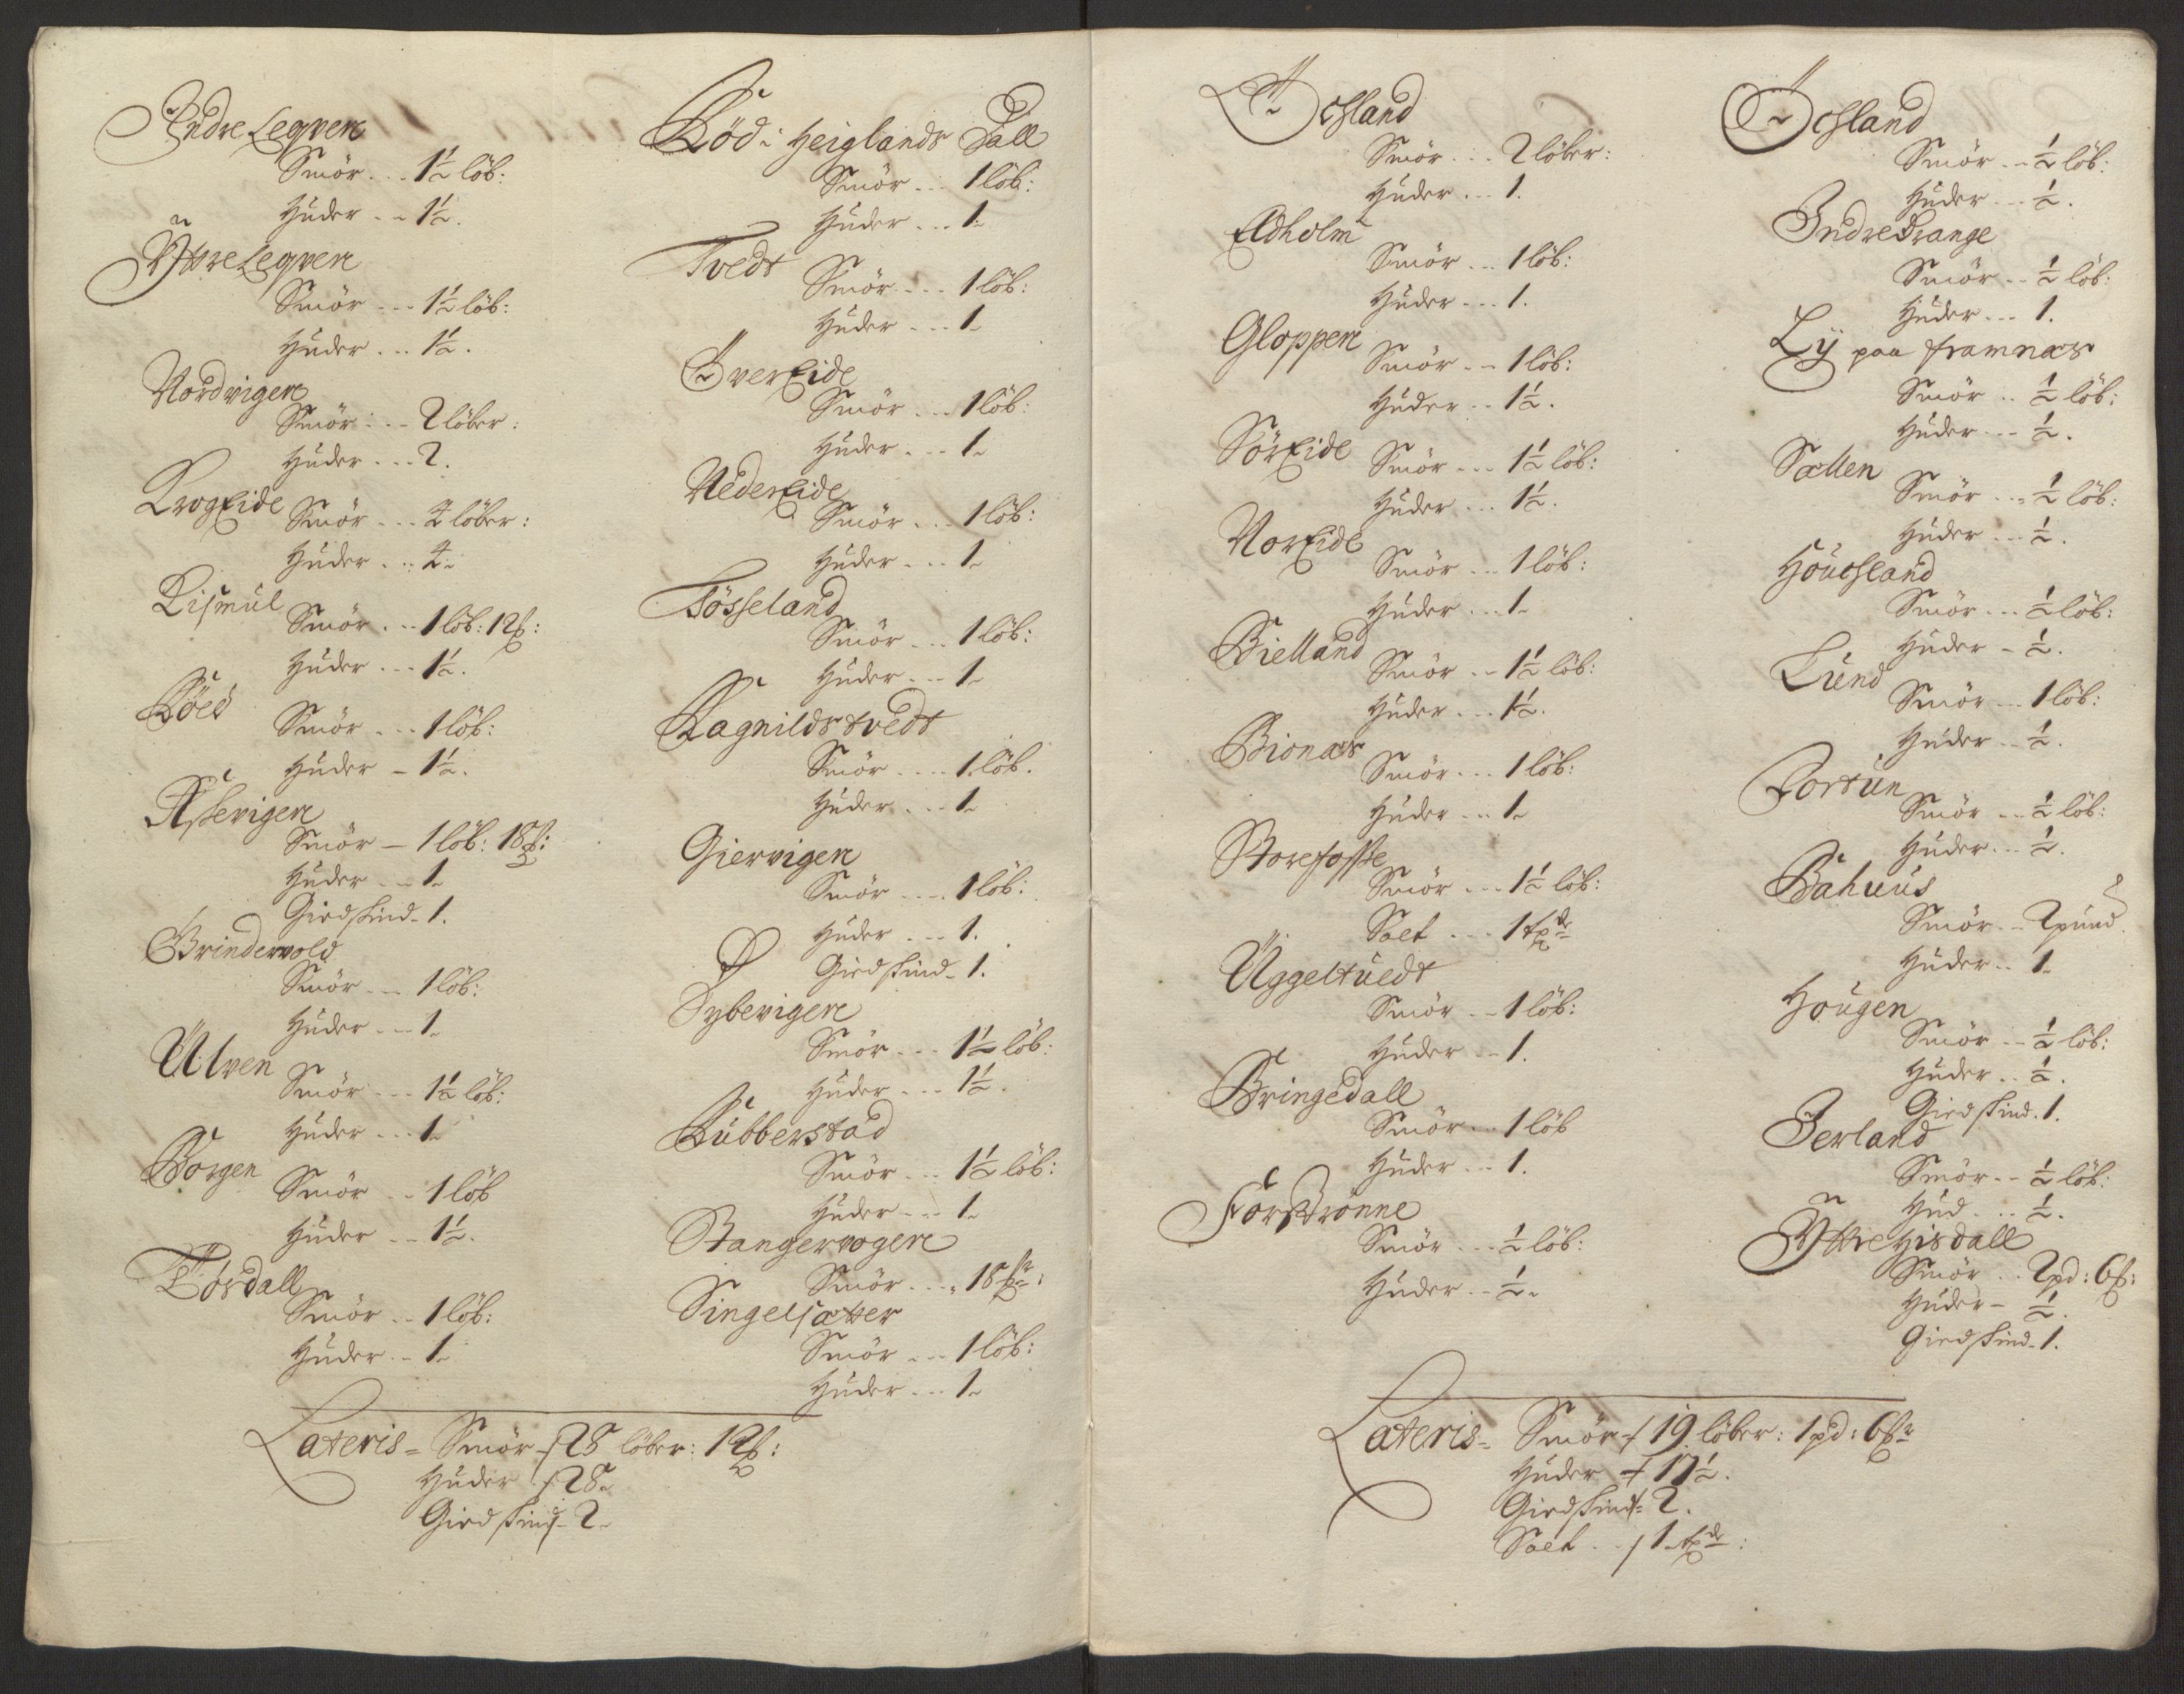 Indre Legven
Smör - - - 1½ löb:
Huder - - 1½.
Ÿttre Legven
Smör - - - 1½ löb:
Huder - - - 1½.
Nordvigen
Smör - - - 2 löber:
Huder - - - 2.
KrogEide
Smör - - - 4 löber:
Huder - - - 4
Lismul
Smör - - - 1 löb: 12 ℔:
Huder - - - 1½.
Röed
Smör - - - 1 löb:
Huder - 1½.
Aaßevigen
Smör — 1 löb: 18 ℔:
Huder - - - 1
Giedskind - 1.
Grindervold
Smör - - - 1 löb:
Huder - - - 1
Ulven
Smör - - - 1½ löb:
Huder - - - 1
Borgen
Smör - - 1 löb
Huder - - 1½.
Tösdall
Smör - - 1 löb:
Huder - - 1
Röd i Heiglands Dall
Smör - - - 1 löb:
Huder - - - 1
Tvedt
Smör - - - 1 löb:
Huder - - - 1
ÖverEide
Smör - - - 1 löb:
Huder - - - 1
NederEide
Smör - - - 1 löb:
Huder - - - 1
Tösseland
Smör - - - 1 löb:
Huder - - - 1
Ragnildstvedt
Smör - - - 1 löb.
Huder - - - 1
Giervigen
Smör - - - 1 löb:
Huder - - - 1.
Giedskind - 1.
Dybevigen
Smör - - - 1½ löb:
Huder - - - 1½.
Rubberstad
Smör - - - 1½ löb:
Huder - - - 1
Stangervogen
Smör - - - 18 ℔:
Singelsætter
Smör - - - 1 löb:
Huder - - - 1
Lateris = Smör - 28 löber: 12 ℔:
Huder - 28
Giedskind - 2
Öchland
Smör - - - 2 löber:
Huder - - - 1.
Adholm
Smör - - - 1 löb:
Huder - - - 1.
Gloppen
Smör - - 1 löb:
Huder - - 1½.
SörEide
Smör - - - 1½ löb:
Huder - - - 1½.
NorEide
Smör - - - 1 löb:
Huder - - - 1
Bielland
Smör - - 1½ löb:
Huder - - - 1½.
Bionæs
Smör - - - 1 löb:
Huder - - - 1
Storefosse
Smör - - - 1½ löb:
Salt - - - 1 tpd
Uggeltuedt
Smör - - 1 löb:
Huder - - 1.
Bringedall
Smör - - - 1 löb
Huder - - - 1.
ForStrönne
Smör - - - ½ löb:
Huder - - ½.
Öchland
Smör - - ½ löb:
Huder - - - ½.
Indre Drange
Smör - - ½ löb:
Huder - - - 1.
Lÿ paa framnæs
Smör - - ½ löb:
Huder - - - ½.
Sætten
Smör - - - ½ löb:
Huder - - - ½.
Höuchland
Smör - - - ½ löb:
Huder - ½.
Lund
Smör - - 1 löb:
Huder - - ½.
Fortun
Smör - - - ½ löb:
Huder - - - ½.
Bahuus
Smör - - 2 pund
Huder - - 1
Hougen
Smör - - ½ löb:
Huder - - ½.
Giedskind - 1.
Jerland
Smör - - ½ löb:
Hud - - - ½.
Ÿttre Hisdall
Smör - - 2 pd: 6 ℔:
Huder - ½.
Giedskind - 1.
Lateris = Smör - 19 löber: 1 pd: 6 ℔
Huder - 17½.
Giedskind - 2.
Salt - - 1 tpd: